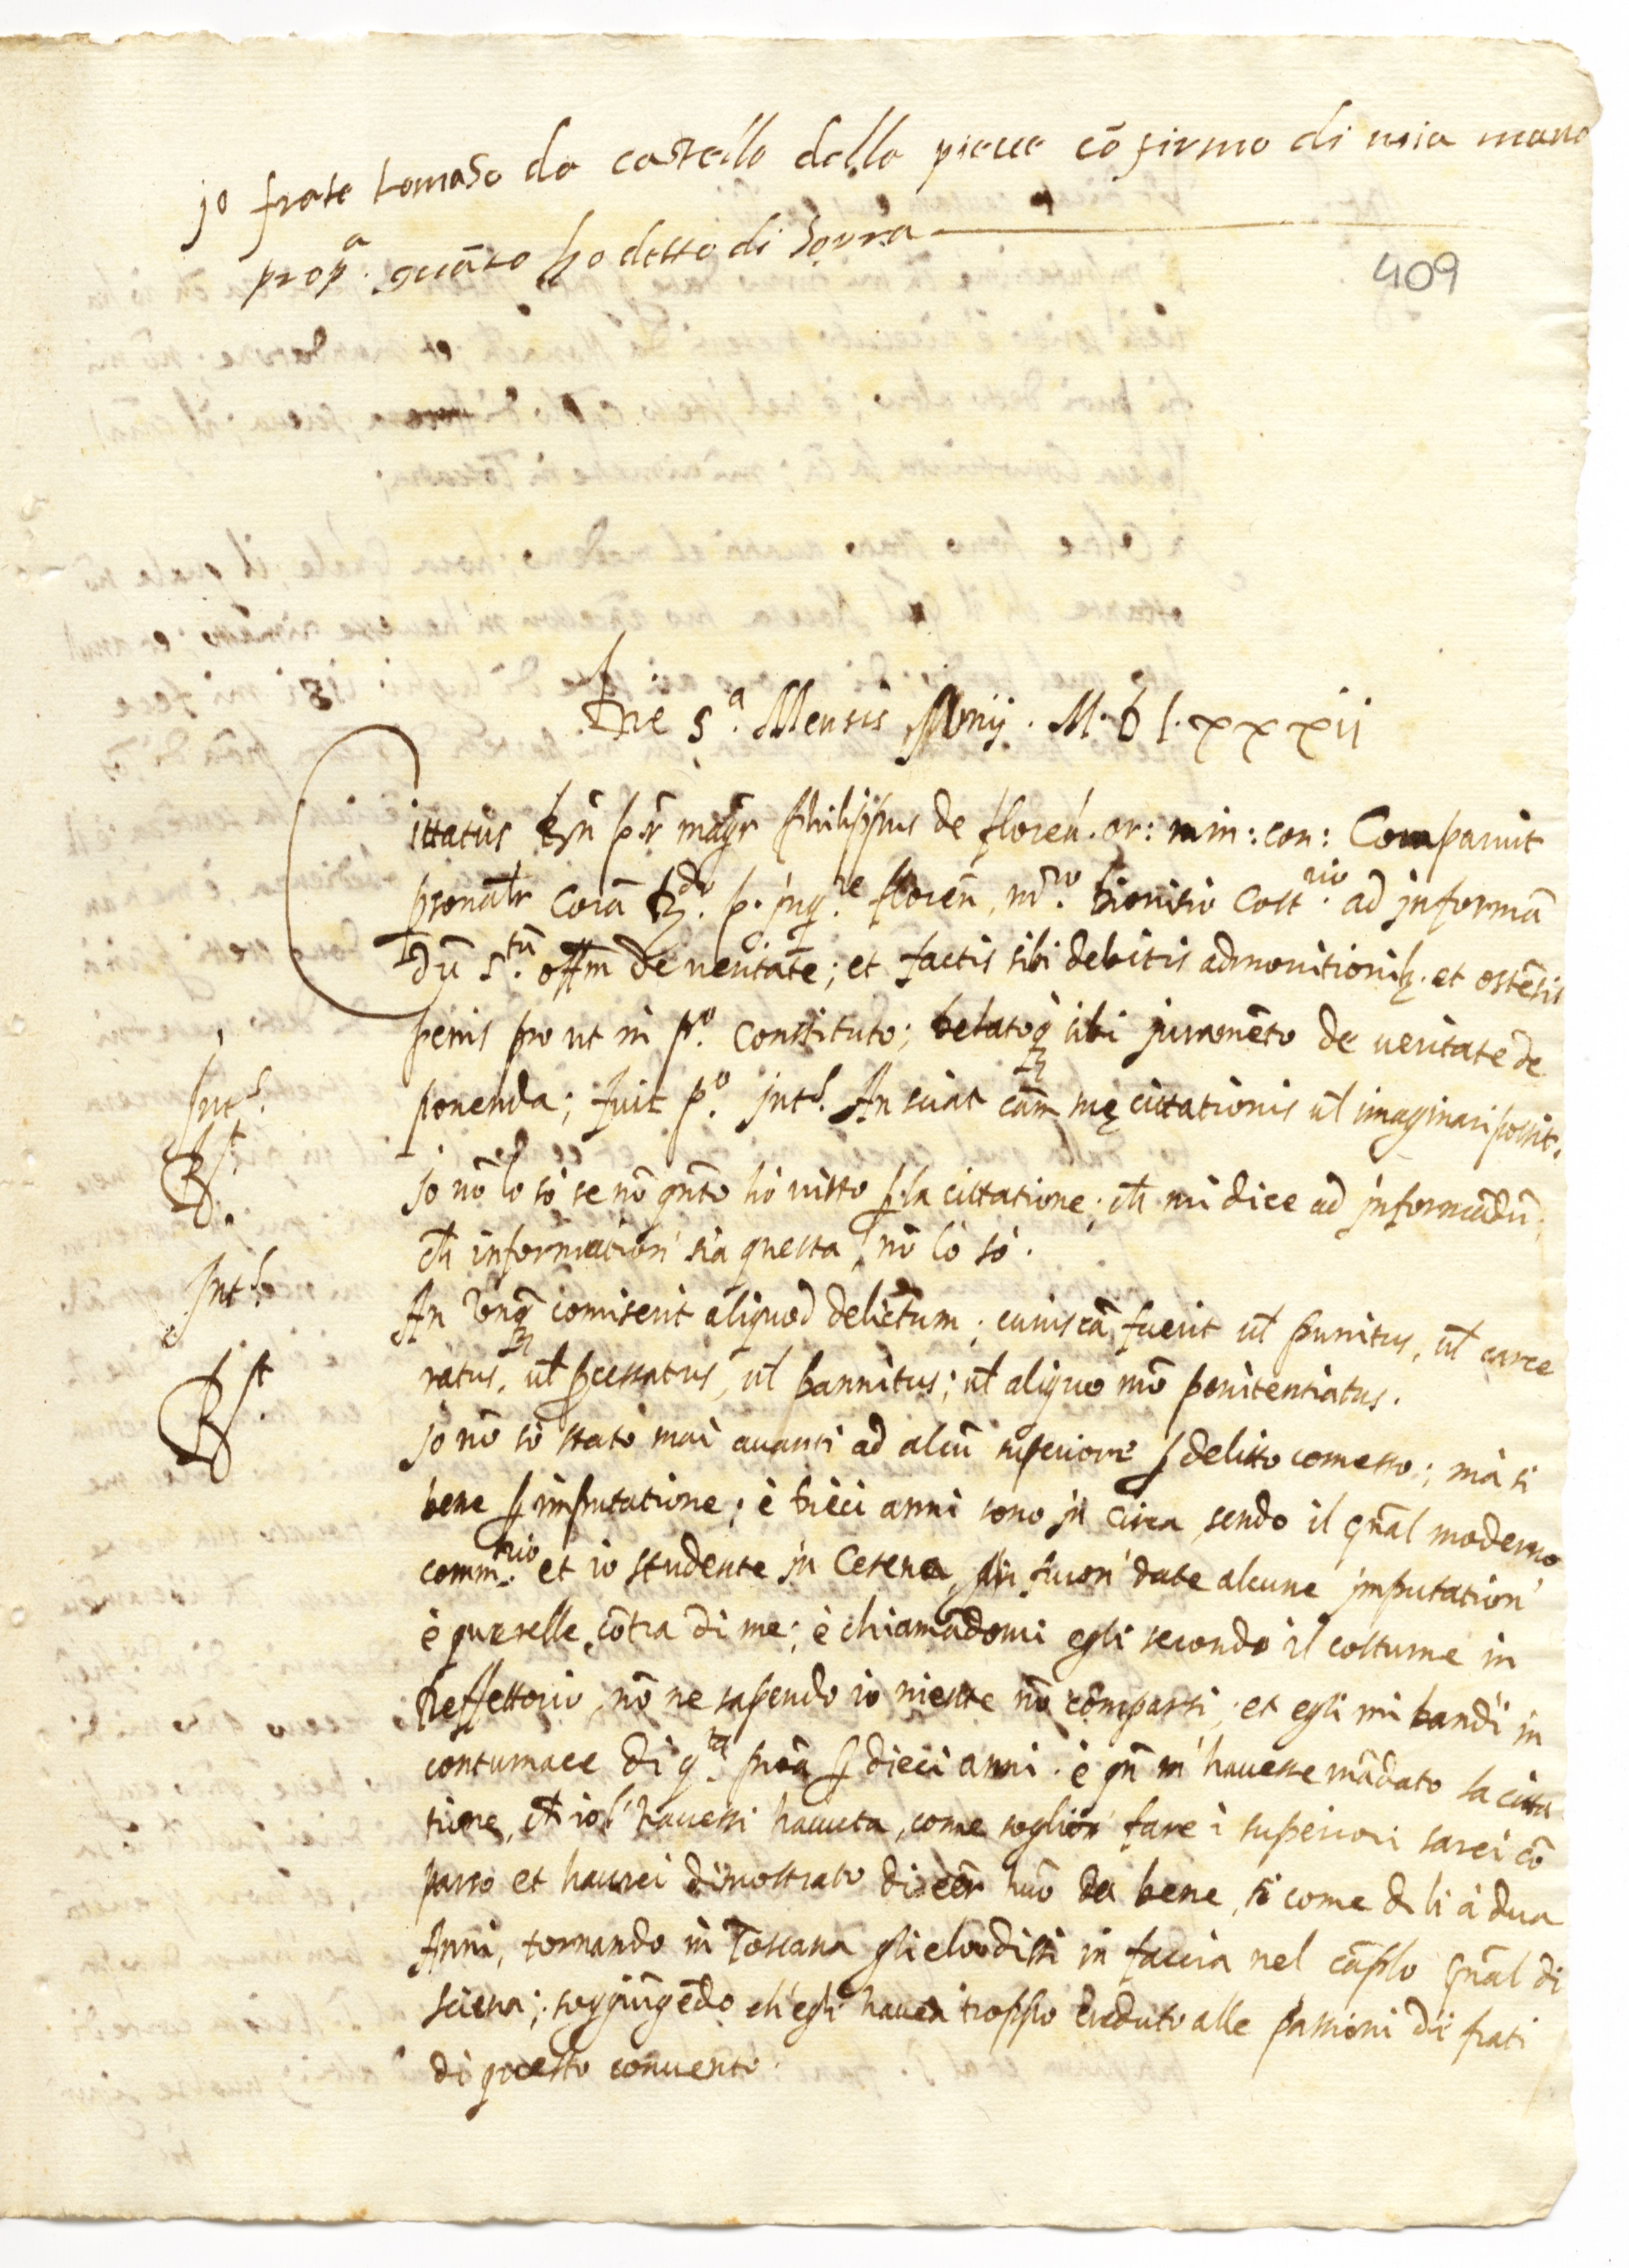 jo frate tomaso da castello della pieue cõfirmo di mia mano
propª. quãto ho detto di sopra
409
Die 5ª. Mensis Junij. M. D l. xxxii
Cittatus Rñ p.r magr Philippus de floreñ. or: min: con: Comparuit
psonalr corã R.do p. jnq.re floreñ, m.ro Dionisio Cost.rio ad informã
dũ S.tũ offm de ueritate; et factis sibi debitis admonitionibq. et ostẽsis
penis pro ut in p.º Constituto; delatoq sibi juramẽto de ueritate de
ponenda; fuit p.º jnt.s An sciat cãm suę cittationis ul imaginari possit.
Int.s
R.t
jo nõ lo sò se nõ qñto hò uisto p la cittatione; ch mi dice ad jnformãdũ;
ch information' sia questa, nõ lo sò.
Int.s
An Vnq comiserit aliquod delictum; cuius cã fuerit ul punitus, ul carce
ratus, ul pcessatus, ul bannitus; ul aliquo mõ penitentiatus.
R.t
jo nõ sò stato mai auanti ad alcũ superiore p delitto comesso; mà si
bene p imputatione; è dieci anni sono jn circa, sendo il gñal moderno
comm.rio et io studente jn Cesena, gli furon' date alcune jmputation'
è querelle cõtra di me; è chiamãdomi egli secondo il costume in
Reffettorio, nõ ne sapendo io niente nõ comparsi; et egli mi bandì in
contumace di q.ta proã p dieci anni. è qñ m'hauesse mãdato la citta
tione, ch io l'hauessi hauuta, come soglion' fare i superiori sarei cõ
parso et haurei dimostrato di eer huõ da bene, si come di li à dua
Anni, tornando in Toscana glielo dissi in faccia nel cãplo gñal di
Siena; soggiũgẽdo ch'egli hauea troppo creduto alle passioni di frati
di questo conuento.